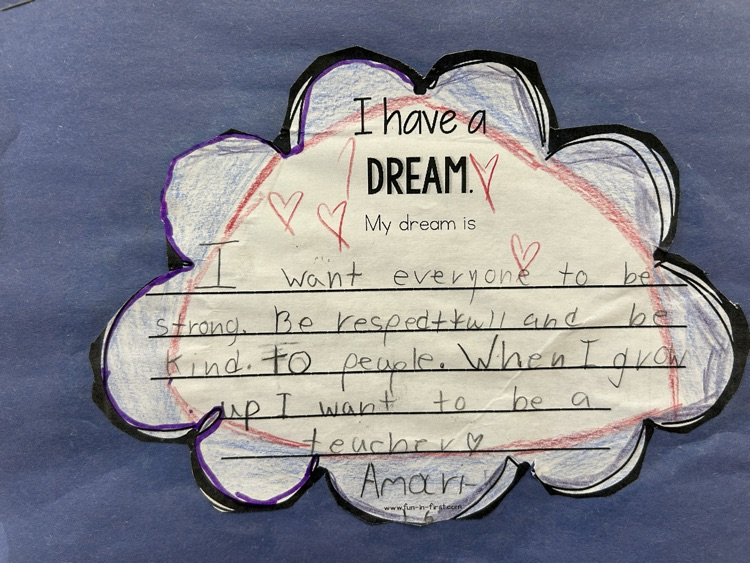 I have a
DREAM.
My dream is
I want everyone to be
strong. Be respedtkull and be
kind. To people. When I grow
up I want to be a
teacher
Amari
www.fun-in-first.com